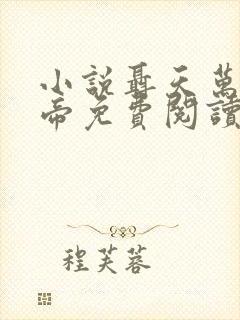 小說聶天萬
帝免費閱讀
程芙蓉